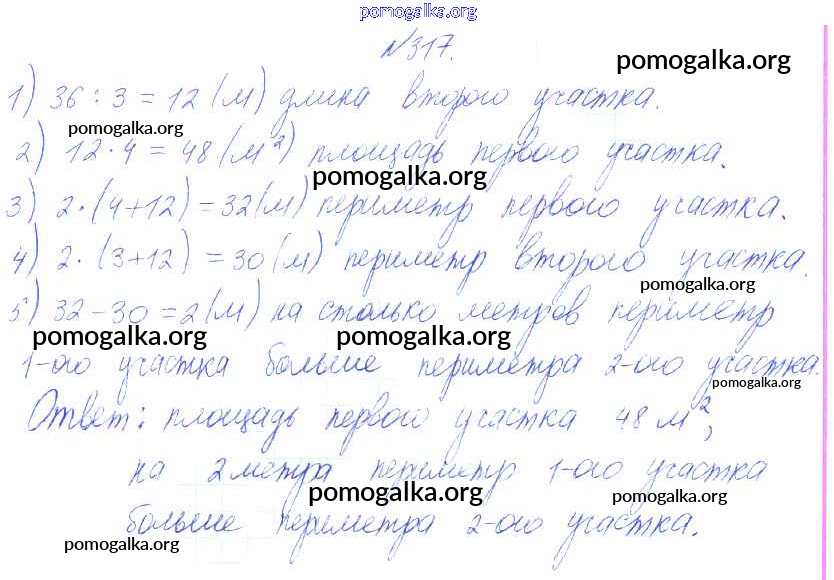 pomogalka.org
№317.
pomogalka.org
1) 36 : 3 = 12 (м) длина второго участка.
pomogalka.org
2) 12 · 4 = 48 (м²) площадь первого участка.
pomogalka.org
3) 2 · (4+12) = 32 (м) периметр первого участка.
4) 2 · (3+12) = 30 (м) периметр второго участка.
pomogalka.org
5) 32 - 30 = 2 (м) на столько метров периметр
pomogalka.org pomogalka.org
1-ого участка больше периметра 2-ого участка.
pomogalka.org
Ответ: площадь первого участка 48 м²,
на 2 метра периметр 1-ого участка
pomogalka.org pomogalka.org
больше периметра 2-ого участка.
pomogalka.org